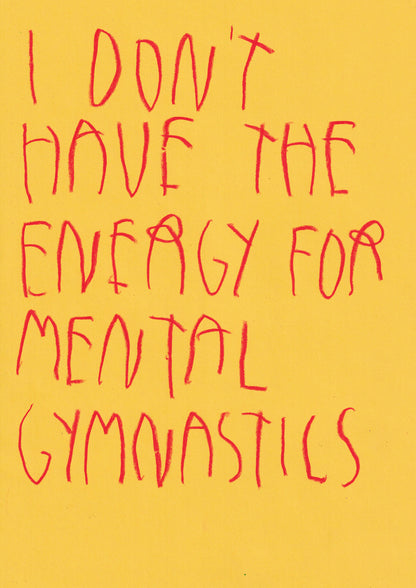 I DON'T
HAVE THE
ENERGY FOR
MENTAL
GYMNASTICS